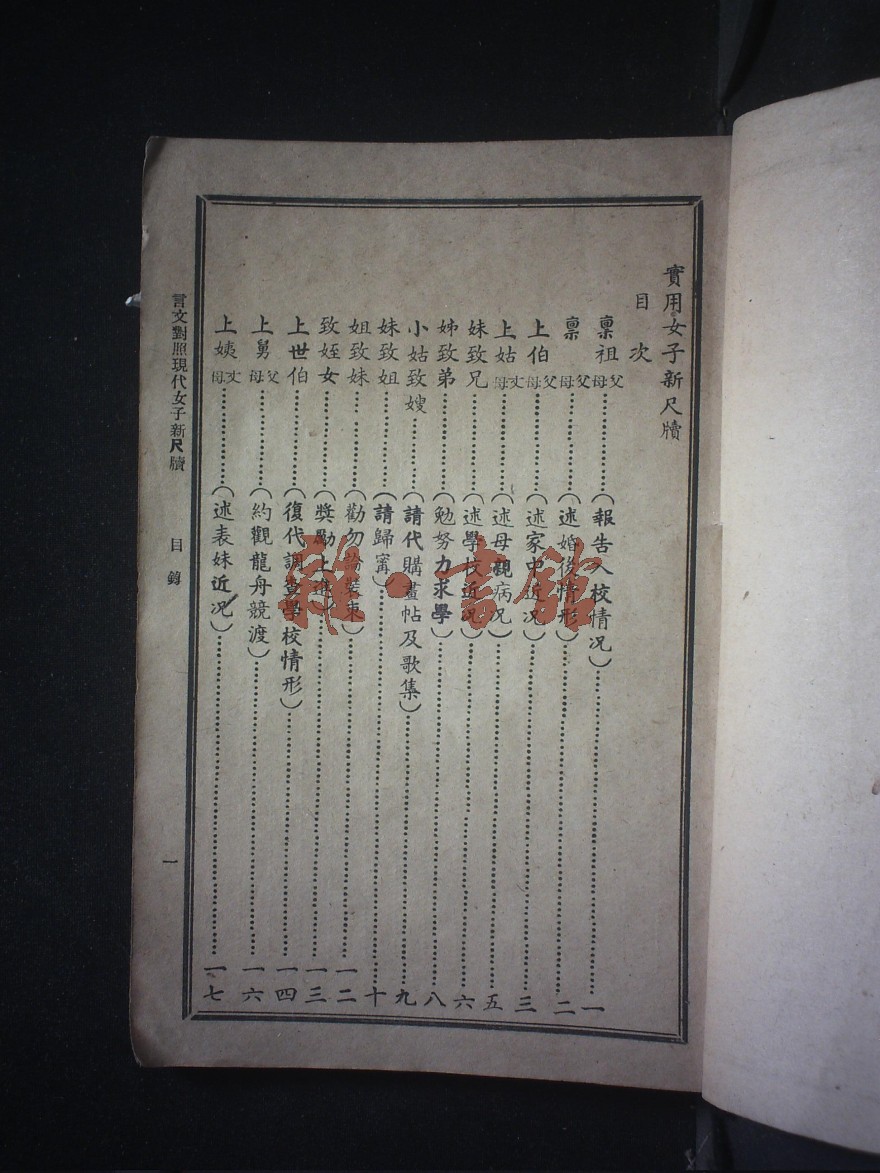 實用女子新尺牘
目次
稟祖父母……(報告入校情况)……一
稟父母……(述婚後情形)……二
上伯父母……(述家中近况)……三
上姑丈母……(述母親病况)……五
妹致兄……(述學校近况)……六
姊致弟……(勉努力求學)……八
小姑致嫂……(請代購畫帖及歌集)……九
妹致姐……(請歸寗)……十
姐致妹……(勸勿裝束)……一二
致姪女……(獎勵上進)……一三
上世伯……(復代調查學校情形)……一四
上舅父母……(約觀龍舟競渡)……一六
上姨丈母……(述表妹近况)……一七
言文對照現代女子新尺牘 目錄 一
雜·書館